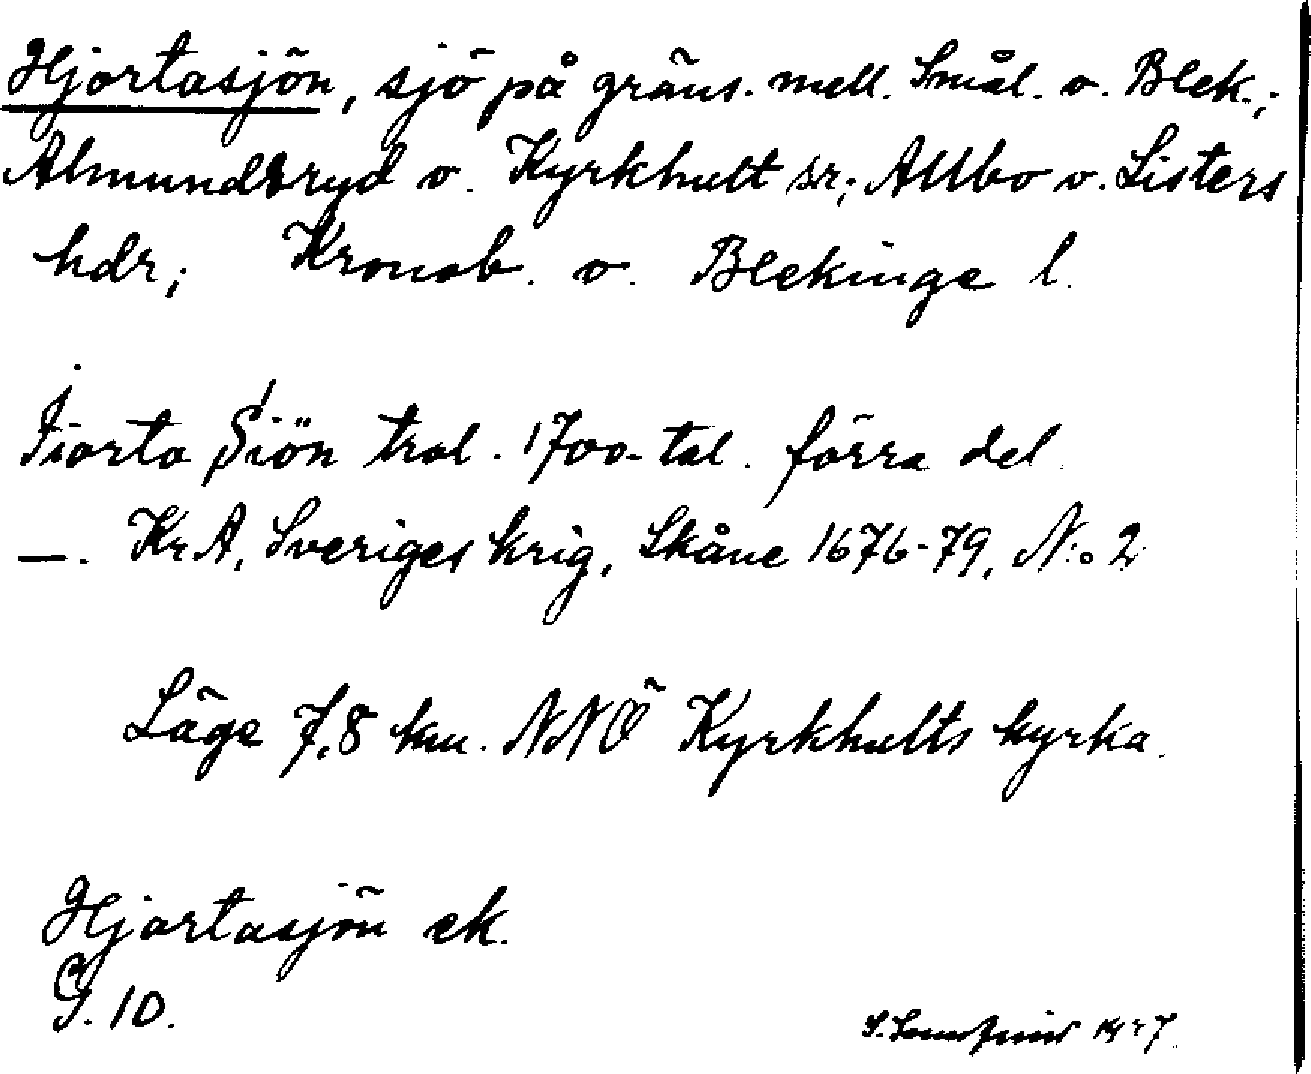 Hjortasjön, sjö på gräns. mell. Smål. o. Blek.;
Almundsryd o. Kyrkhult sr; Allbo o. Listers
hdr; Kronob. o. Blekinge l.
Iiorta Siön tral. 1700-tal. förra del.
—. KrA, Sveriges krig, Skåne 1676-79, N:o 2
Läge 7,8 km. NNÖ Kyrkhults kyrka.
Hjortasjön ek.
G. 10.
S.